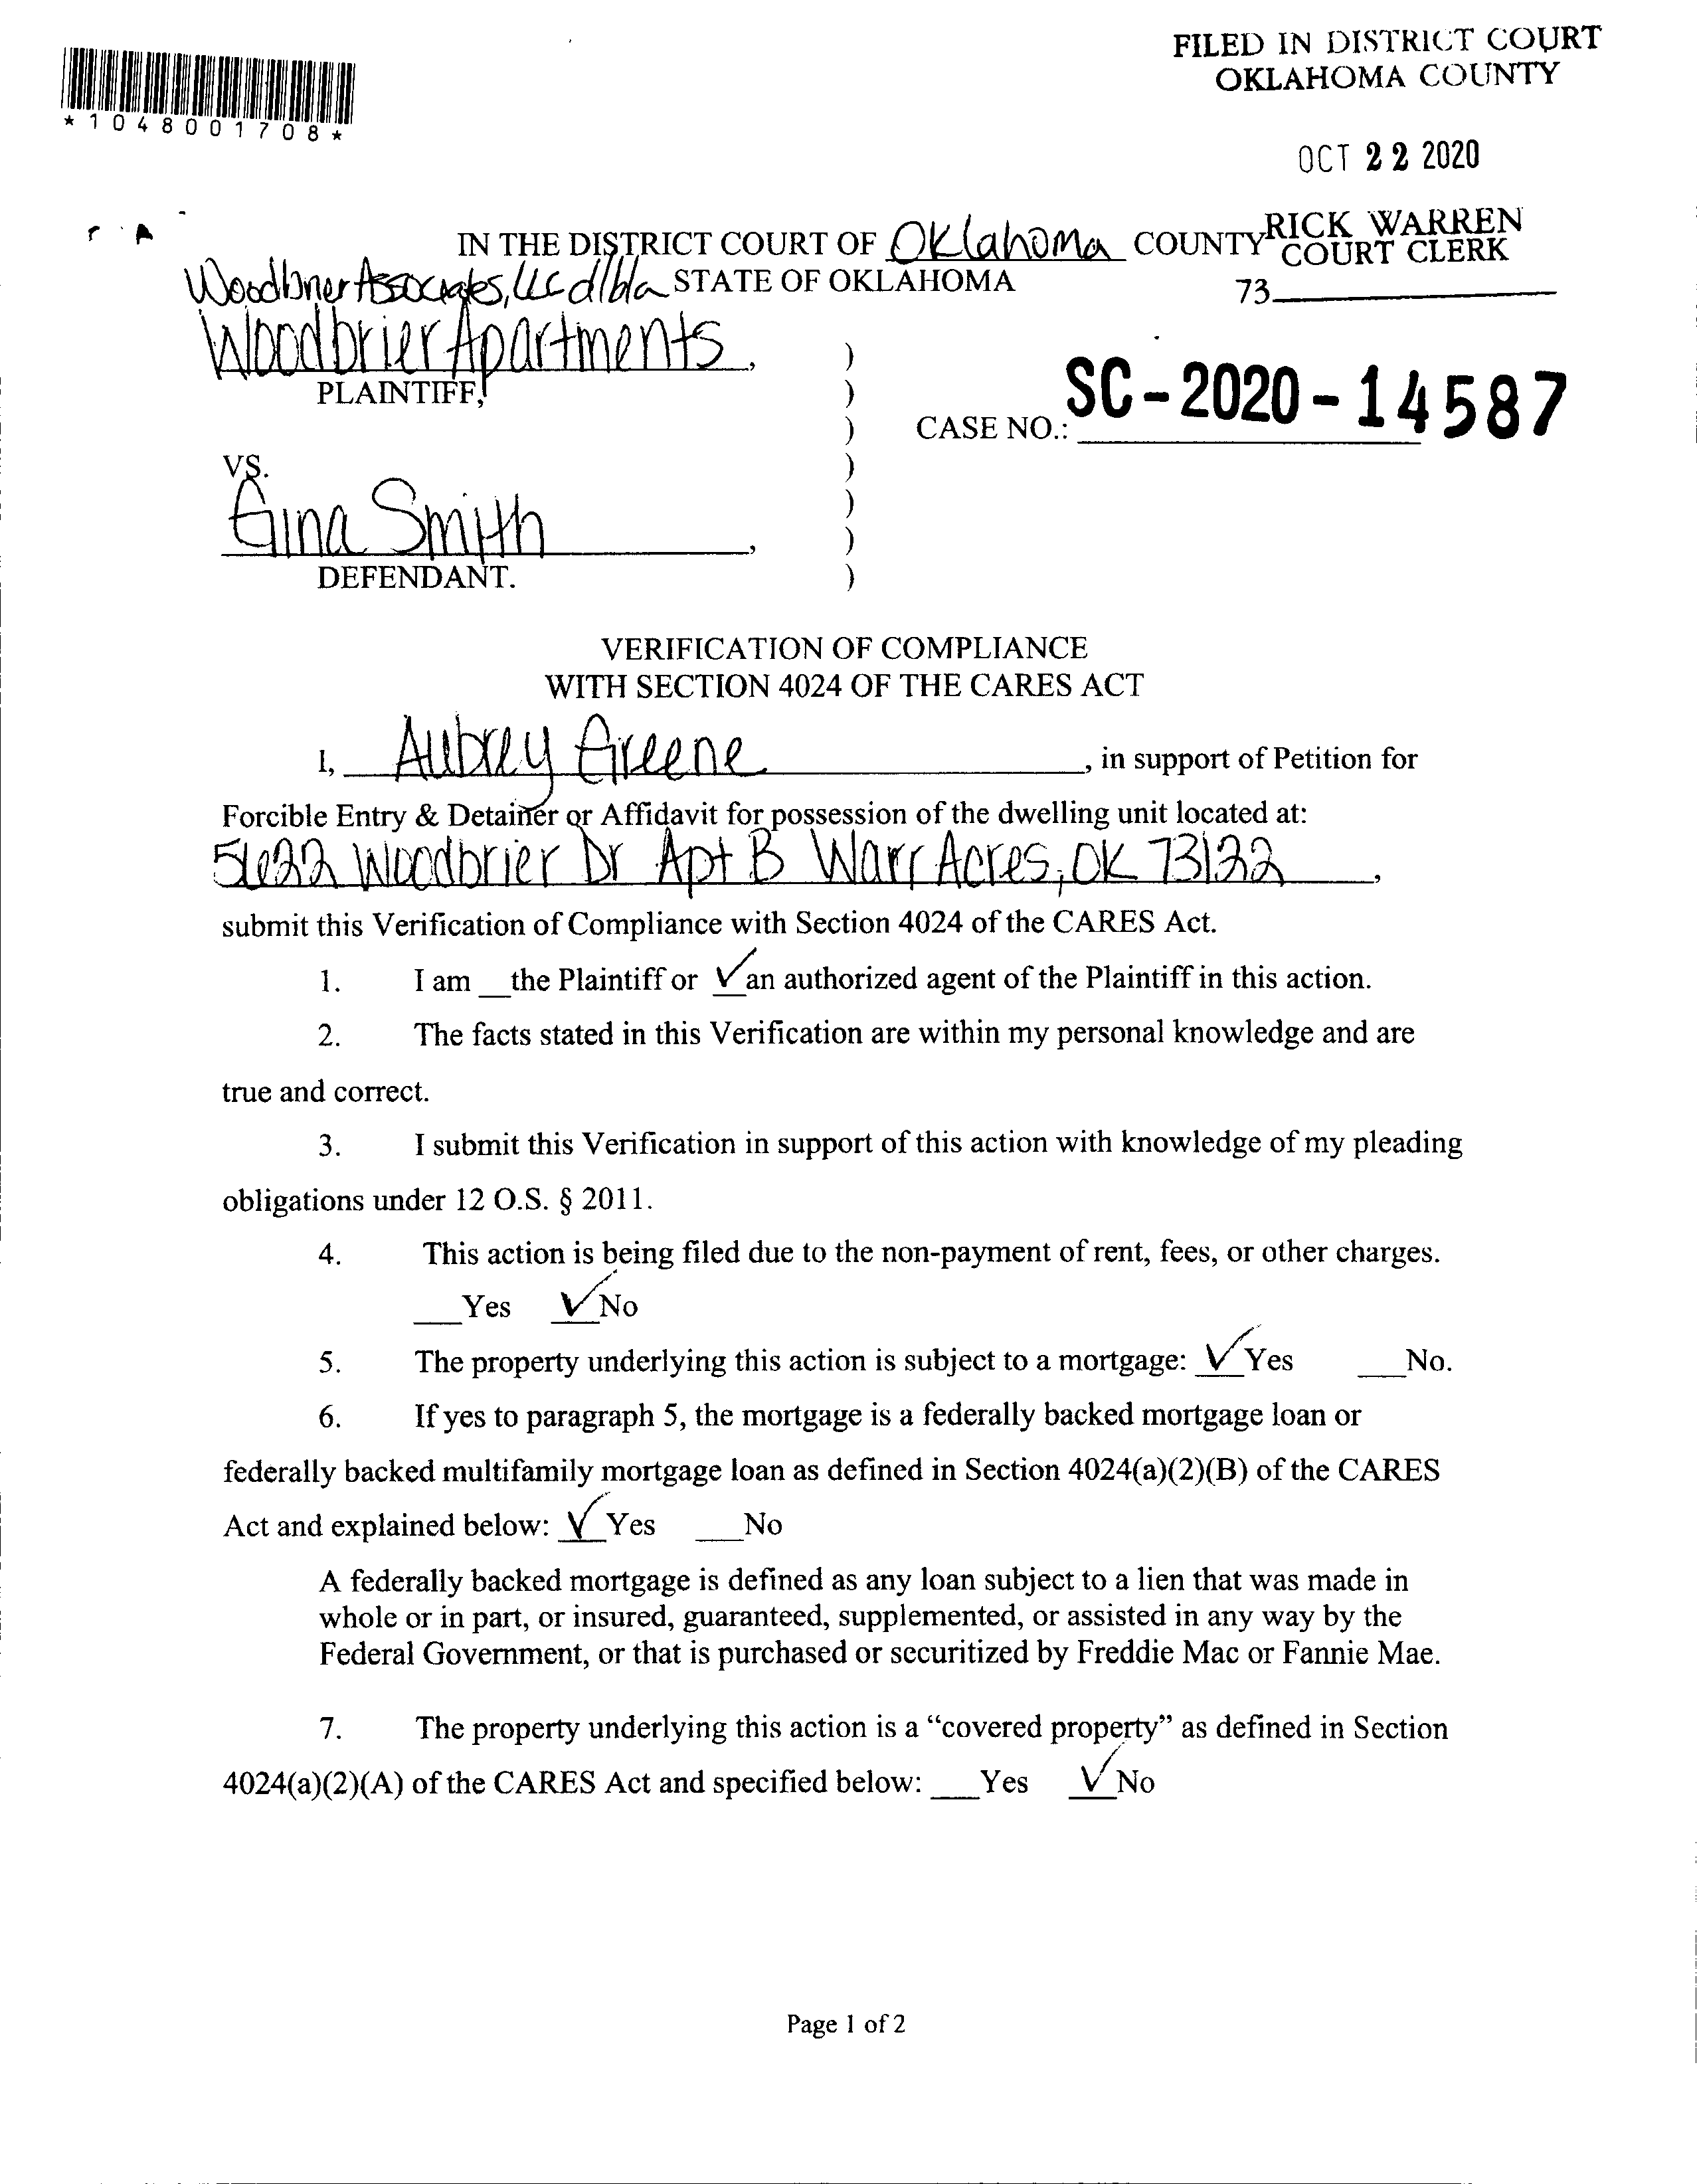 FILED IN DISTRICT COURT
OKLAHOMA COUNTY
*1048001708*
OCT 22 2020
RICK WARREN
COURT CLERK
73
IN THE DISTRICT COURT OF Oklahoma COUNTY
STATE OF OKLAHOMA
Woodbrier Associates, LLC d/b/a
Woodbrier Apartments,
PLAINTIFF,
)
)
)
)
)
)
)
CASE NO.: SC-2020-14587
VS.
Gina Smith,
DEFENDANT.
VERIFICATION OF COMPLIANCE
WITH SECTION 4024 OF THE CARES ACT
I, Aubrey Greene, in support of Petition for
Forcible Entry & Detainer or Affidavit for possession of the dwelling unit located at:
5622 Woodbrier Dr Apt B Warr Acres, OK 73122,
submit this Verification of Compliance with Section 4024 of the CARES Act.
1. I am __the Plaintiff or ✓an authorized agent of the Plaintiff in this action.
2. The facts stated in this Verification are within my personal knowledge and are
true and correct.
3. I submit this Verification in support of this action with knowledge of my pleading
obligations under 12 O.S. § 2011.
4. This action is being filed due to the non-payment of rent, fees, or other charges.
___Yes ✓No
5. The property underlying this action is subject to a mortgage: ✓Yes ___No.
6. If yes to paragraph 5, the mortgage is a federally backed mortgage loan or
federally backed multifamily mortgage loan as defined in Section 4024(a)(2)(B) of the CARES
Act and explained below: ✓Yes ___No
A federally backed mortgage is defined as any loan subject to a lien that was made in
whole or in part, or insured, guaranteed, supplemented, or assisted in any way by the
Federal Government, or that is purchased or securitized by Freddie Mac or Fannie Mae.
7. The property underlying this action is a “covered property” as defined in Section
4024(a)(2)(A) of the CARES Act and specified below: ___Yes ✓No
Page 1 of 2